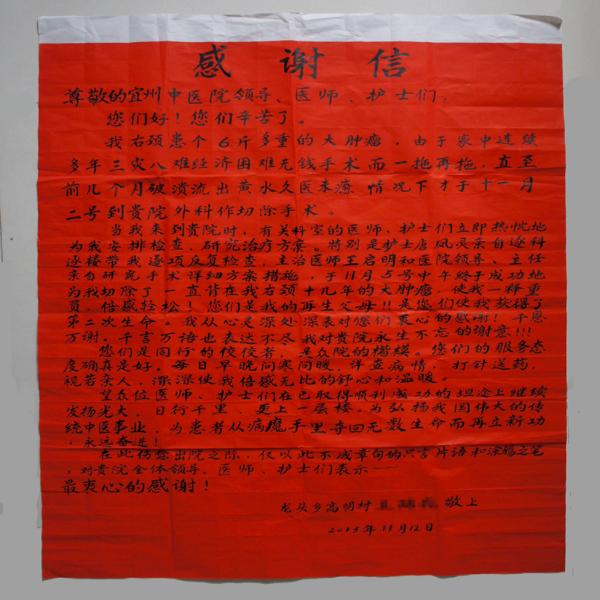 感谢信
尊敬的宜州中医院领导、医师、护士们：
您们好！您们辛苦了。
我右颈患个6斤多重的大肿瘤，由于家中连续
多年三灾八难经济困难无钱手术而一拖再拖，直至
前几个月破溃流出黄水久医未 情况下才于十一月
二号到贵院外科作切除手术。
当我来到贵院时，有关科室的医师、护士们立即热忱地
为我安排检查，研究治疗方案。特别是护士唐凤灵亲自逐科
逐楼带我逐项反复检查，主治医师王启明和医院领导、主任
亲自研究手术详细方案措施，于11月5号中午终于成功地
为我切除了一直背在我右颈十几年的大肿瘤，使我一释重
负，倍感轻松！您们是我的再生父母！！是您们使我获得了
第二次生命。我从心是深处深表对您们衷心的感谢！千恩
万谢。千言万语也表达不尽我对贵院永生不忘的谢意！！！
您们是同行的佼佼者，是众院的楷模。您们的服务态
度确真是好。每日早晚问寒问暖，详查病情，打针送药，
视若亲人，深深使我倍感无比的舒心和温暖。
望众位医师、护士们在已取得顺利成功的坦途上继续
发扬光大，日行千里，更上一层楼，为弘扬我国伟大的传
统中医事业，为患者从病魔手里夺回无数生命而再立新功
，永远奋进！
在此伤愈出院之际，仅以此不成章句的只言片语和涂鸦之笔
，对贵院全体领导、医师、护士们表示——
最衷心的感谢！
龙头乡高明村 敬上
2015年11月12日